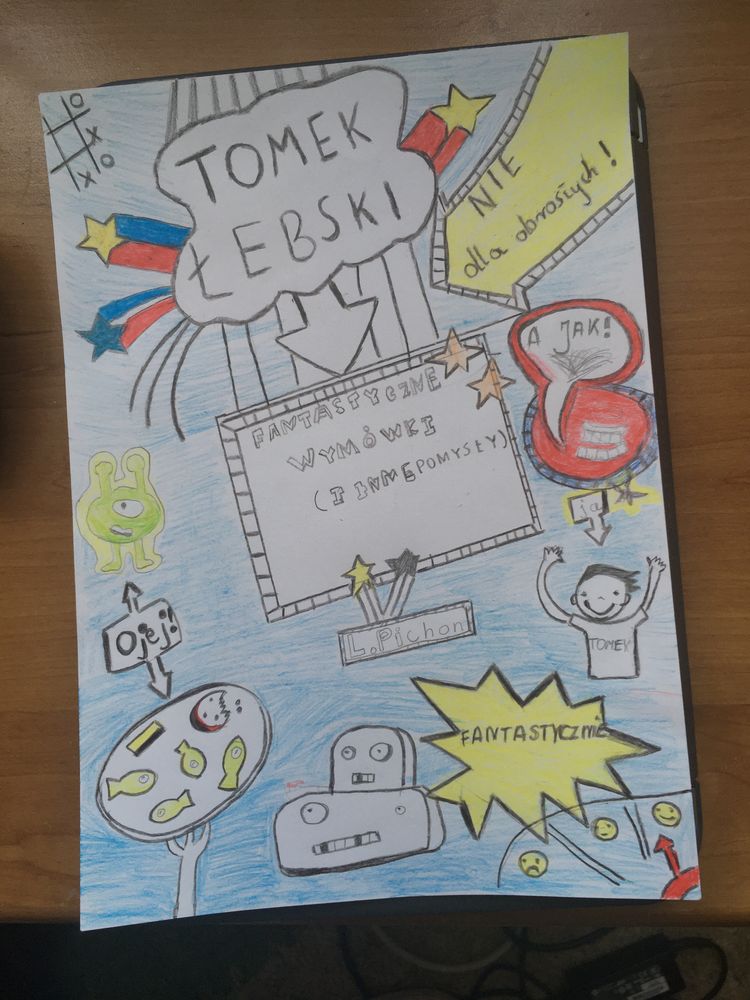 TOMEK
ŁEBSKI
NIE
dla obrosłych!
A JAK!
FANTASTYCZNE
WYMÓWKI
(I INNE POMYSŁY)
ja
TOMEK
Ojej!
L.Pichon
FANTASTYCZNIE